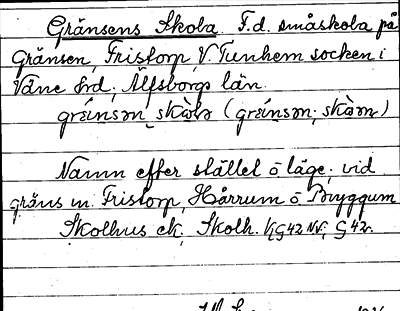 Gränsens Skola F.d. småskola på
Gränsen, Fristorp, V. Tunhem socken i
Väne hrd, Älfsborgs län.
gräinsən skàla (gräinsən; skàən)
Namn efter stället o läge vid
gräns m. Fristorp, Hårrum o Bryggum
Skolhus ek, Skolh. G 42 NV; G 42.